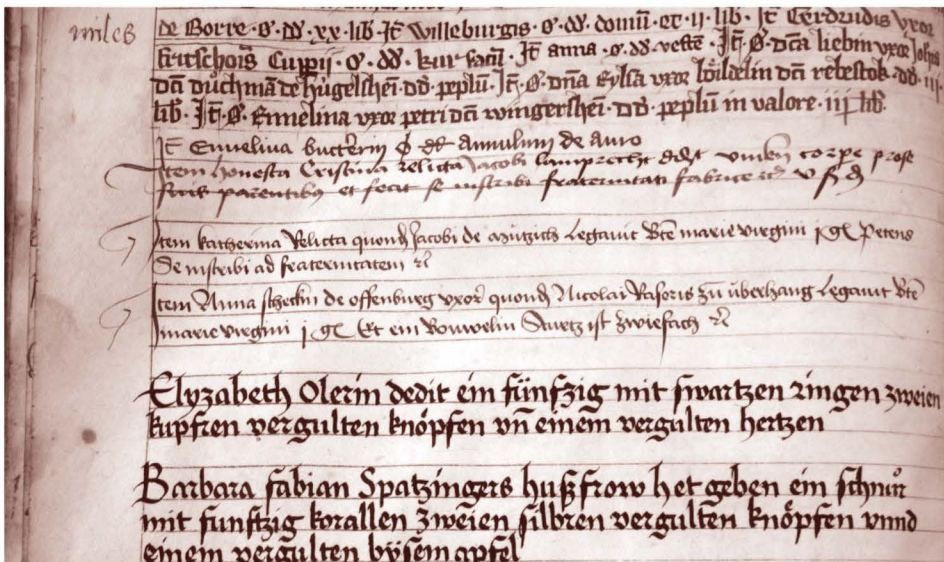 miles
de Borre · ꝍ · dꝺ · xx · lib · Jt̃ Willeburgis · ꝍ · dꝺ · domũ · et · ii · lib · Jt̃ Gerdrudis vxor
fritschoñs Cuppij · ꝍ · dꝺ · kursacil · Jt̃ anna · ꝍ · dꝺ · vestẽ · Jt̃ · ꝍ · dc̃a liebin vxor Joh̃is
dc̃i dũchmã de hugelsheĩ · dꝺ · peplũ · Jt̃ · ꝍ · dñã Eylsa vxor dc̃i rebestok · dꝺ · iij
lib · Jt̃ · ꝍ · Ennelina vxor petri dc̃i wingersheĩ · dꝺ · peplũ in valore · iij · lib
Jt̃ Ennelina butterin ꝍ dꝺ annulum de auro
Item honesta Cristina relicta Jacobi lamprecht dedit corpore prose
suis parentibus et fecit se inscribi fraternitati fabrice
Item katherina Relicta quond̃ Jacobi de mutzich Legauit Bt̃e marie virgini j gl̃ Petens
Se inscribi ad fraternitatem
Item Anna de offenburg vxor quond̃ Nicolai Rasoris zu überhang Legauit Bt̃e
marie virgini j gl̃ Et ein Swartz ist zwiefach
Elyzabeth Olerin dedit ein fünfzig mit swartzen ringen zweien
kupfren vergulten knöpfen vñ einem vergulten hertzen
Barbara fabian Spatzingers hußfrow het geben ein schnůr
mit funftzig korallen zweien silbren vergulten knöpfen vnnd
einem vergulten bysem apfel